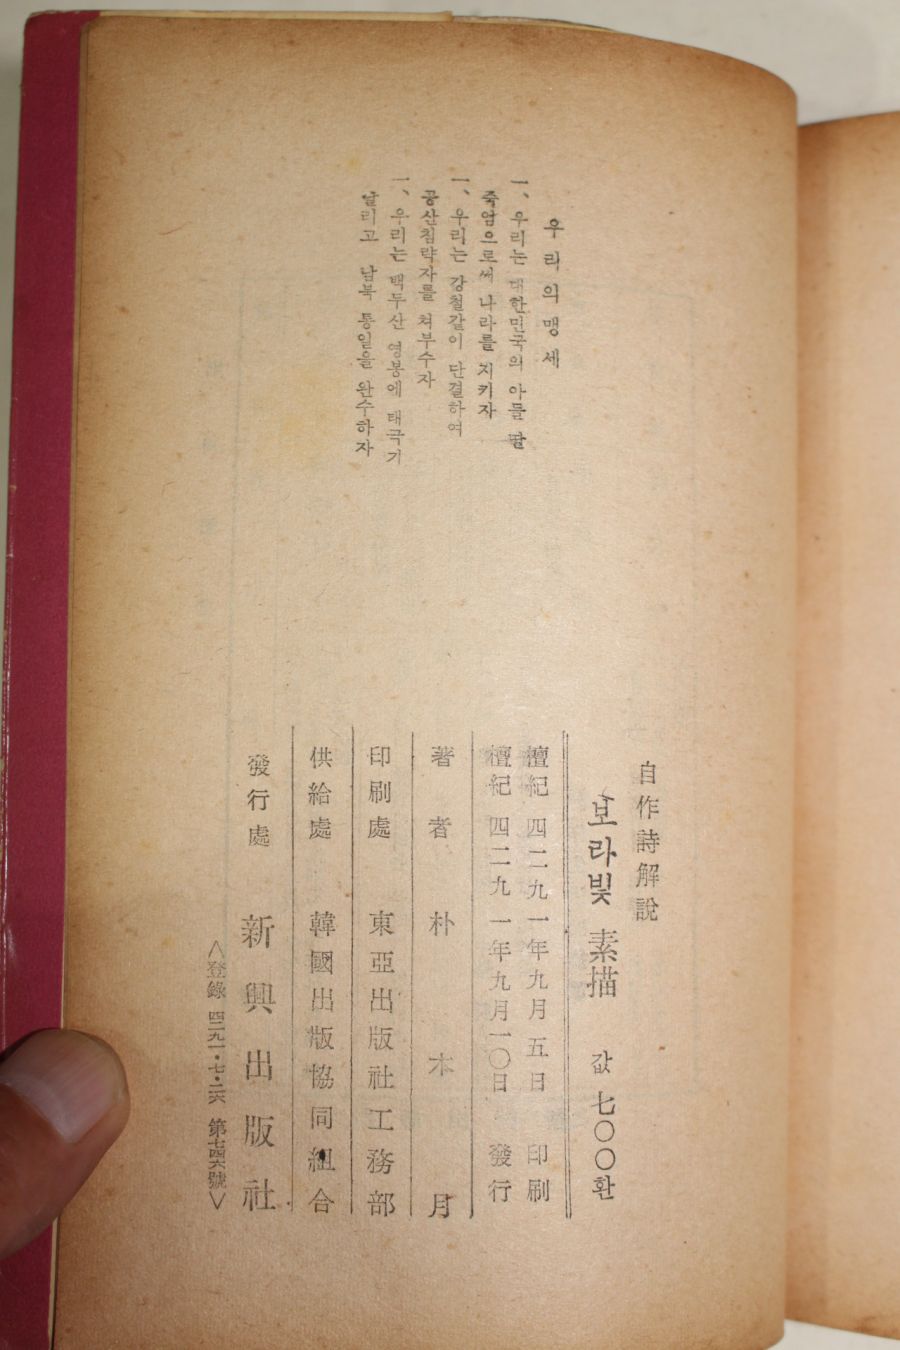 우리의 맹세
一、우리는 대한민국의 아들 딸
죽엄으로써 나라를 지키자
一、우리는 강철같이 단결하여
공산침략자를 쳐부수자
一、우리는 백두산 영봉에 태극기
날리고 남북 통일을 완수하자
自作詩解說
보라빛 素描 값 七〇〇환
檀紀 四二九一年九月 五日 印刷
檀紀 四二九一年九月一〇日 發行
著者 朴木月
印刷處 東亞出版社工務部
供給處 韓國出版協同組合
發行處 新興出版社
〈登錄 四二九一・七・二六 第七四六號〉